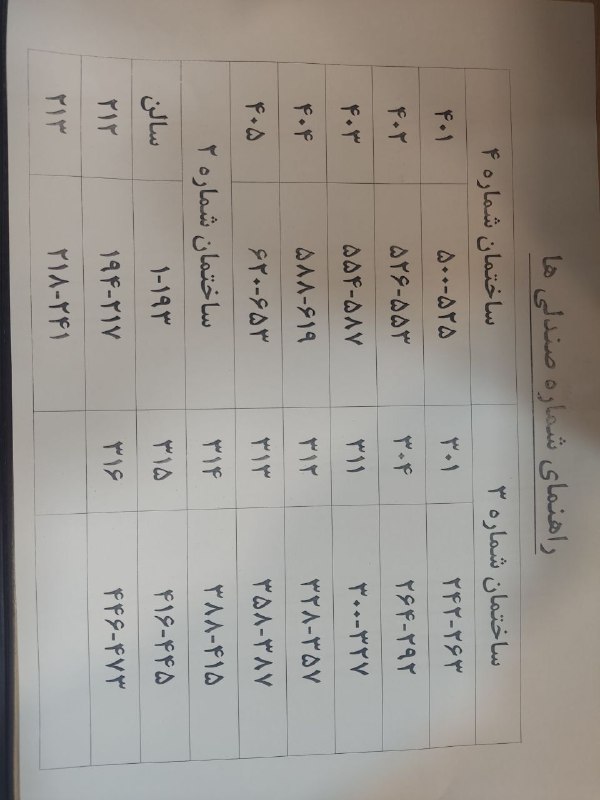 راهنمای شماره صندلی ها
ساختمان شماره ۳ ساختمان شماره ۴
۲۴۲-۲۶۳ ۳۰۱ ۵۰۰-۵۲۵ ۴۰۱
۲۶۴-۲۹۲ ۳۰۴ ۵۲۶-۵۵۳ ۴۰۲
۳۰۰-۳۲۷ ۳۱۱ ۵۵۴-۵۸۷ ۴۰۳
۳۲۸-۳۵۷ ۳۱۲ ۵۸۸-۶۱۹ ۴۰۴
۳۵۸-۳۸۷ ۳۱۳ ۶۲۰-۶۵۳ ۴۰۵
۳۸۸-۴۱۵ ۳۱۴ ساختمان شماره ۲
۴۱۶-۴۴۵ ۳۱۵ ۱-۱۹۳ سالن
۴۴۶-۴۷۳ ۳۱۶ ۱۹۴-۲۱۷ ۲۱۲
۲۱۸-۲۴۱ ۲۱۳